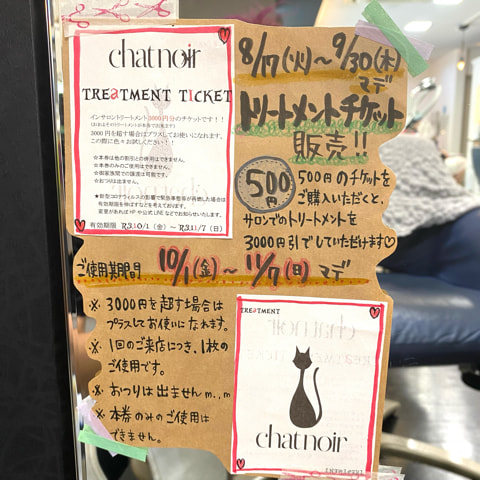 chatnoir
TREaTMENT TICKET
インサロントリートメント3000円分のチケットです！！
3000円を超す場合はプラスしてお使いになれます。
この際に色々お試しください！！
※本券は他の割引との併用はできません。
※本券のみのご使用はできません。
※御家族間での譲渡は可能です。
※おつりは出ません。
★新型コロナウィルスの影響で緊急事態等が再燃した場合は
有効期限を伸ばすなどを考えております。
変更があればHPや公式LINEなどでお知らせいたします。
有効期限 R3.10/1（金）～R3.11/7（日）
8/17（火）～9/30（木）
マデ
トリートメントチケット
販売!!
500円
500円のチケットを
ご購入いただくと、
サロンでのトリートメントを
3000円引でしていただけます♡
ご使用期間 10/1（金）～11/7（日）マデ
※3000円を超す場合は
プラスしてお使いになれます。
※1回のご来店につき、1枚の
ご使用です。
※おつりは出ませんm..m
※本券のみのご使用は
できません。
TREaTMENT
chatnoir